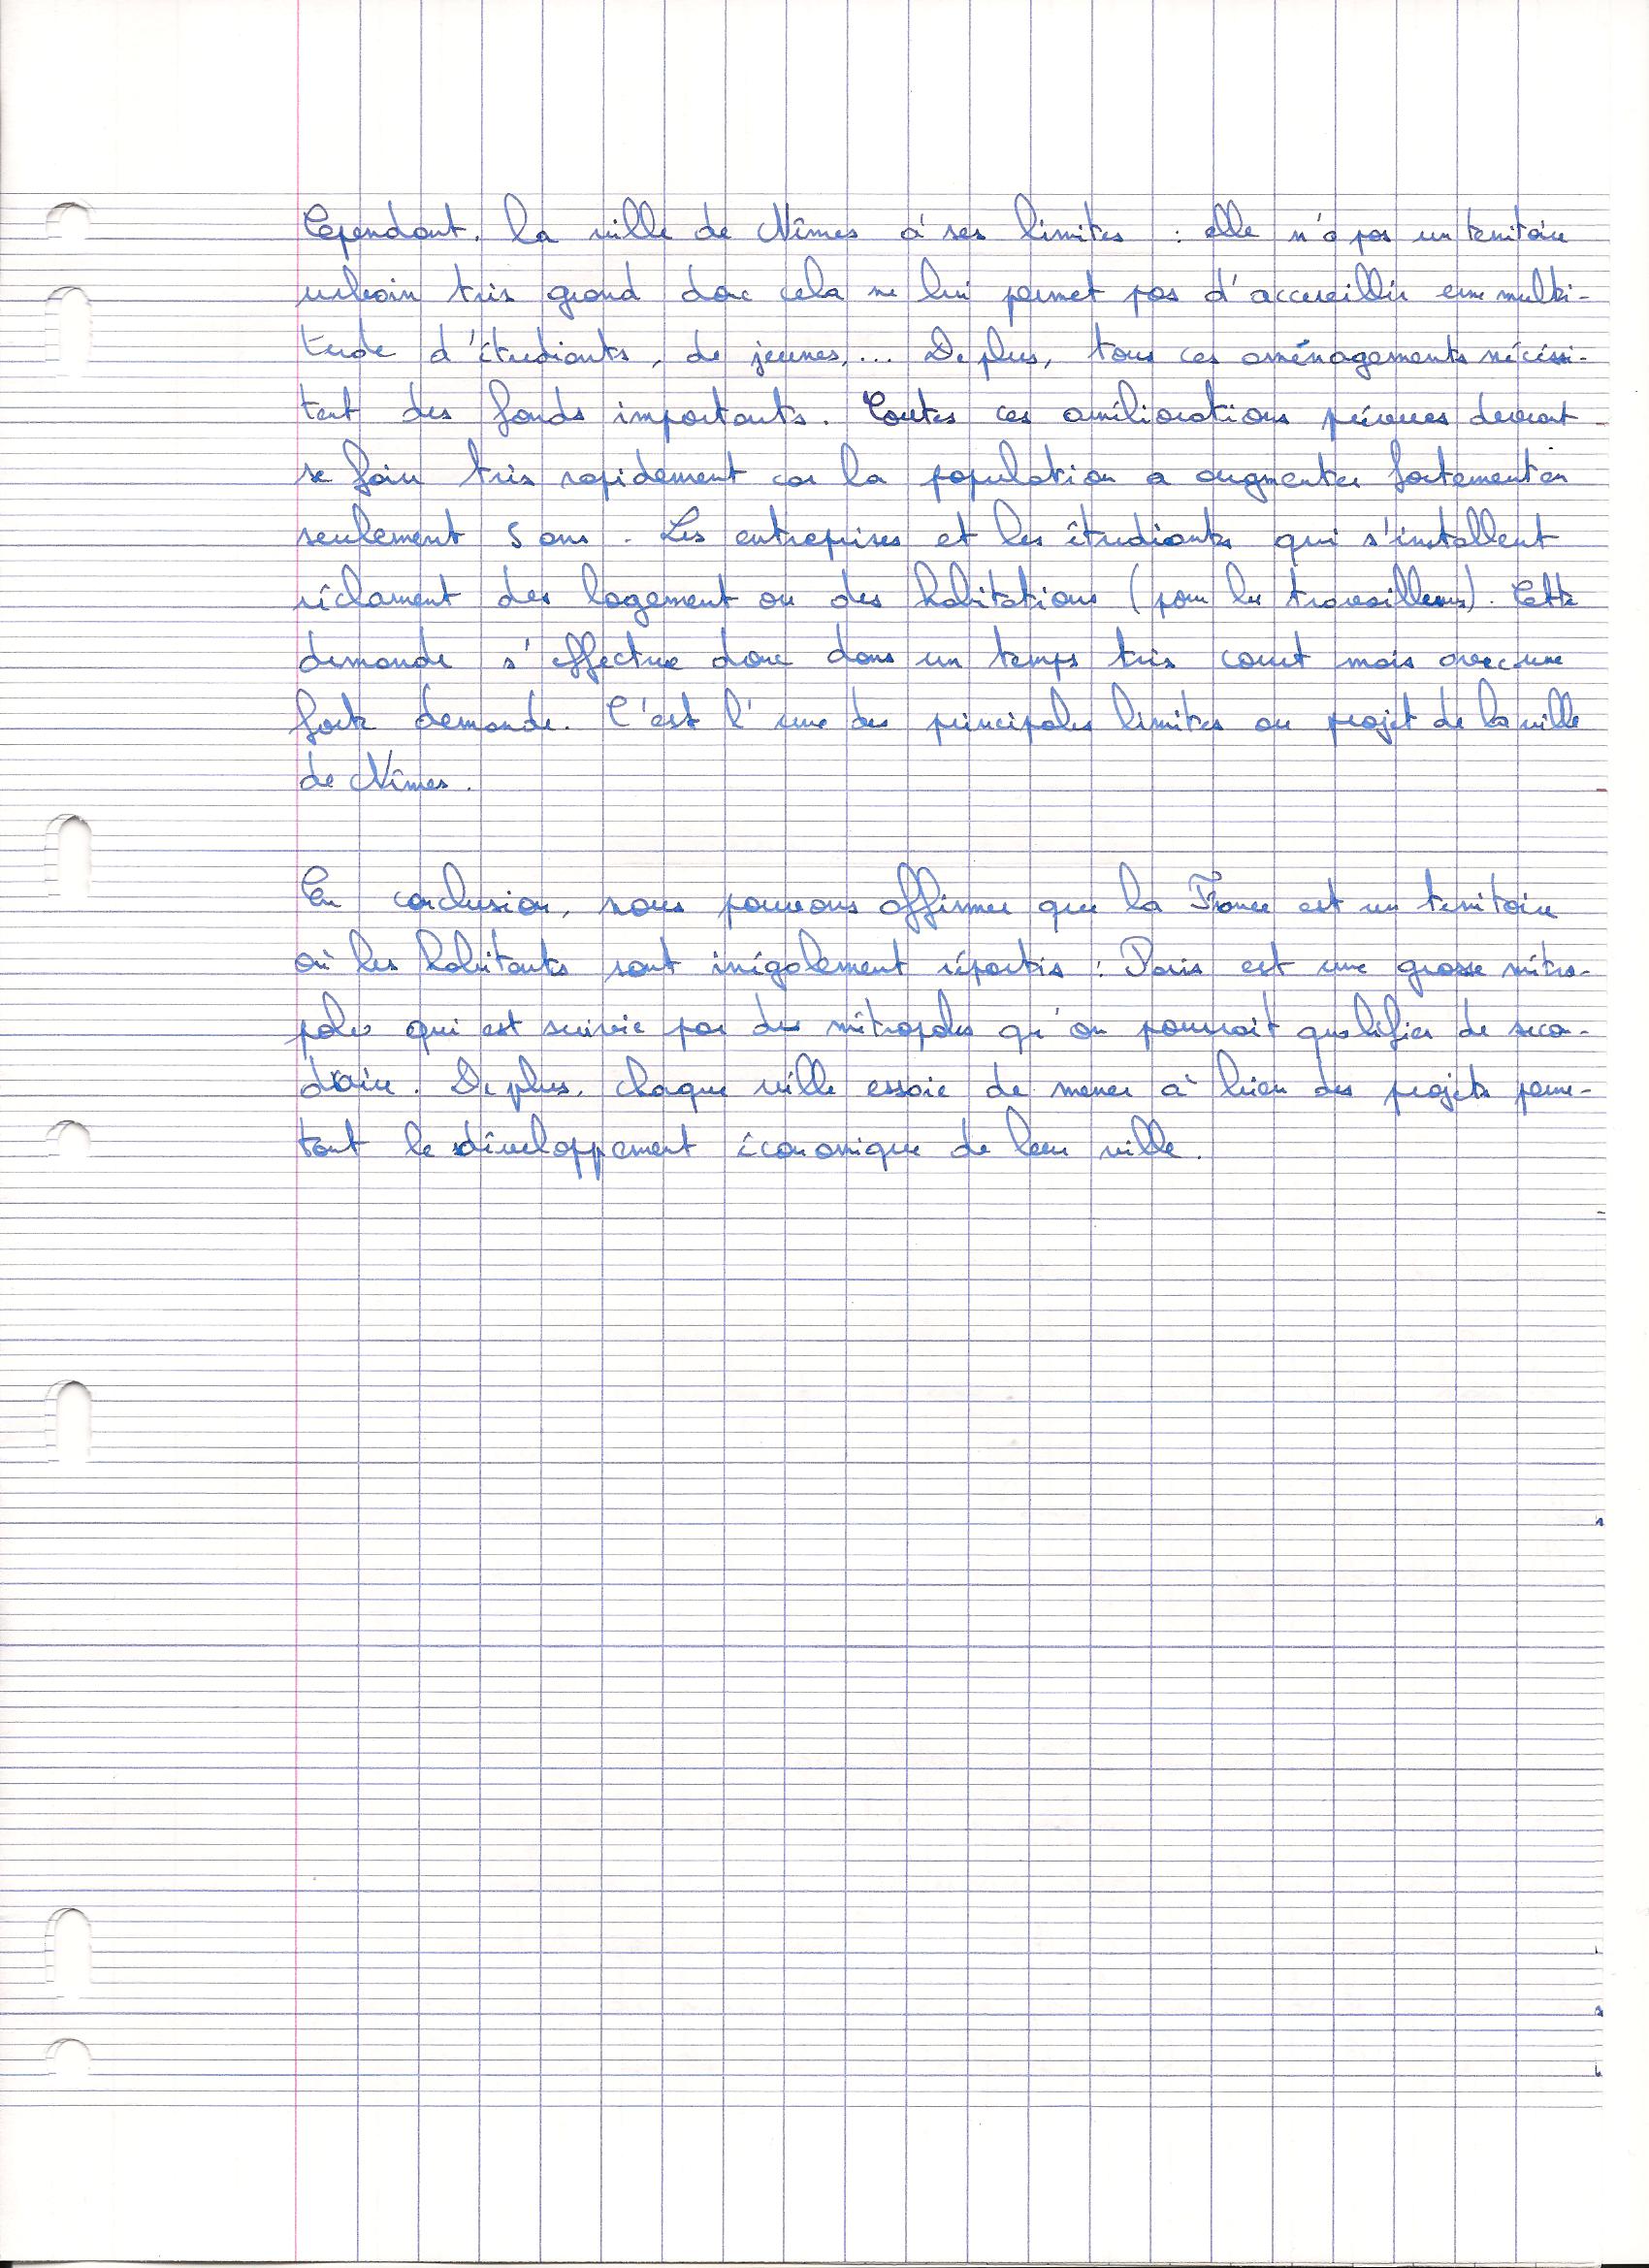 Cependant, la ville de Nîmes à ses limites : elle n'a pas un territoire
urbain très grand donc cela ne lui permet pas d'accueillir une multi-
tude d'étudiants, de jeunes,... De plus, tous ces aménagements nécéssi-
tent des fonds importants. Toutes ces améliorations prévues devront
se faire très rapidement car la population a augmenter fortement en
seulement 5 ans. Les entreprises et les étudiants qui s'installent
réclament des logement ou des habitations (pour les travailleurs). Cette
demande s'effectue donc dans un temps très court mais avec une
forte demande. C'est l'une des principales limites au projet de la ville
de Nîmes.
En conclusion, nous pouvons affirmer que la France est un territoire
où les habitants sont inégalement répartis : Paris est une grosse métro-
pole qui est suivie par des métropoles qu'on pourrait qualifier de secon-
daire. De plus, chaque ville essaie de mener à bien des projets perme-
tant le développement économique de leur ville.